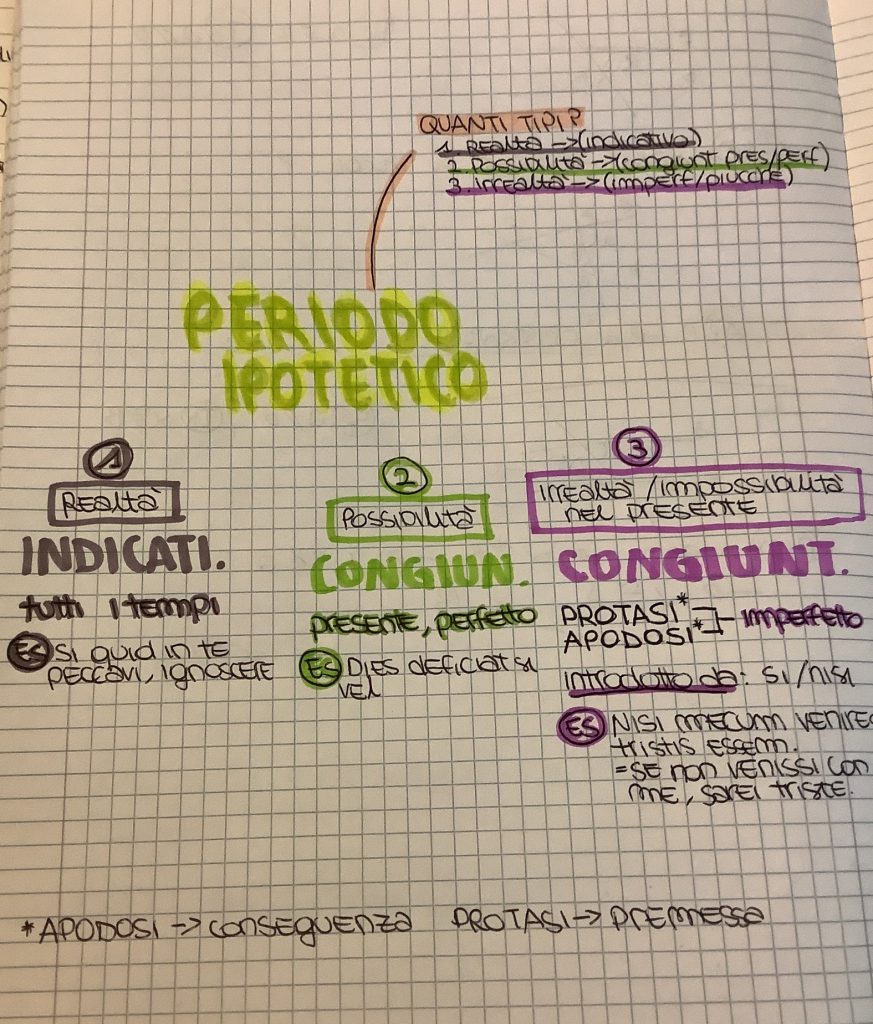 QUANTI TIPI?
1. REALTÀ ->(indicativo)
2. POSSIBILITÀ ->(congiunt pres/perf)
3. IRREALTÀ ->(imperf/piucche)
PERIODO
IPOTETICO
1
REALTÀ
INDICATI.
tutti i tempi
ES SI QUID IN TE
PECCAVI, IGNOSCERE
2
POSSIBILITÀ
CONGIUN.
PRESENTE, PERFETTO
ES DIES DEFICIAT SI
VEL
3
IRREALTÀ /IMPOSSIBILITÀ
NEL PRESENTE
CONGIUNT.
PROTASI*
APODOSI* - IMPERFETTO
INTRODOTTO DA: SI/NISI
ES NISI MECUM VENIRES
TRISTIS ESSEM.
=SE NON VENISSI CON
ME, SAREI TRISTE.
*APODOSI -> CONSEGUENZA PROTASI -> PREMESSA